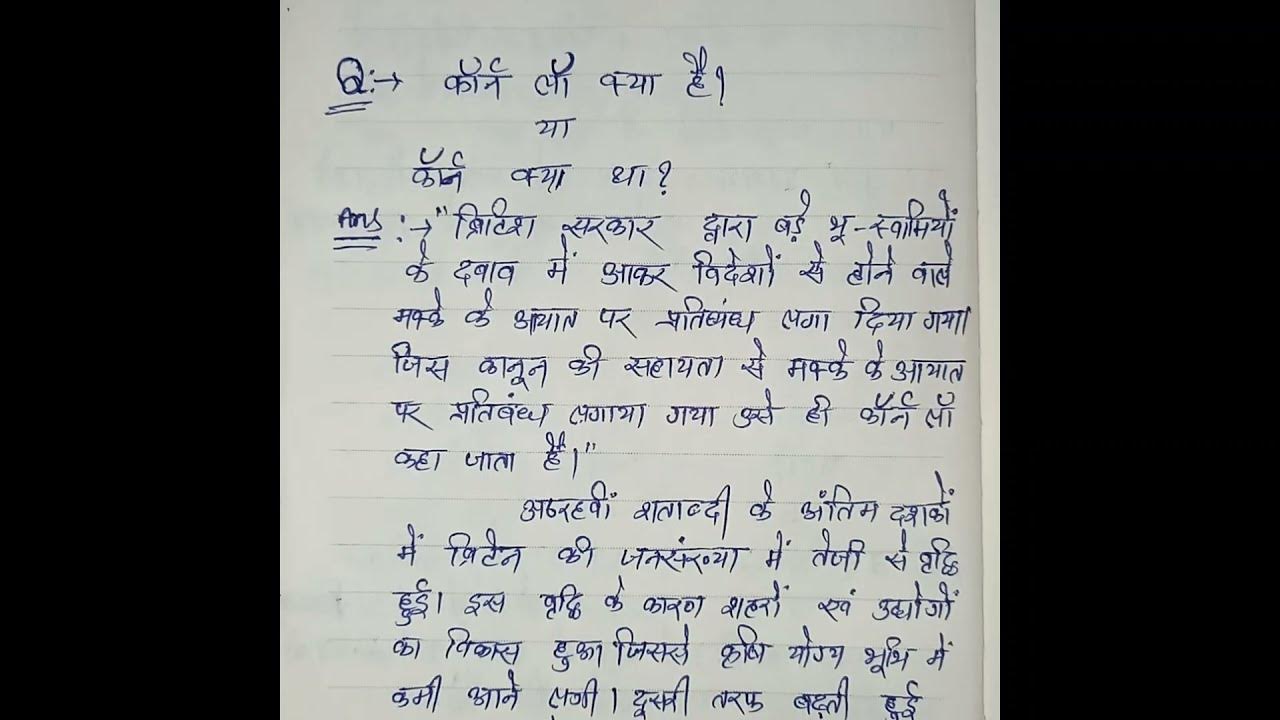 Q:→ कॉर्न लॉ क्या है।
या
कॉर्न क्या था?
Ans :→ "ब्रिटिश सरकार द्वारा बड़े भू-स्वामियों
के दबाव में आकर विदेशों से होने वाले
मक्के के आयात पर प्रतिबंध लगा दिया गया।
जिस कानून की सहायता से मक्के के आयात
पर प्रतिबंध लगाया गया उसे ही कॉर्न लॉ
कहा जाता है।"
अठारहवीं शताब्दी के अंतिम दशकों
में ब्रिटेन की जनसंख्या में तेजी से वृद्धि
हुई। इस वृद्धि के कारण शहरों एवं उद्योगों
का विकास हुआ जिससे कृषि योग्य भूमि में
कमी आने लगी। दूसरी तरफ बढ़ती हुई